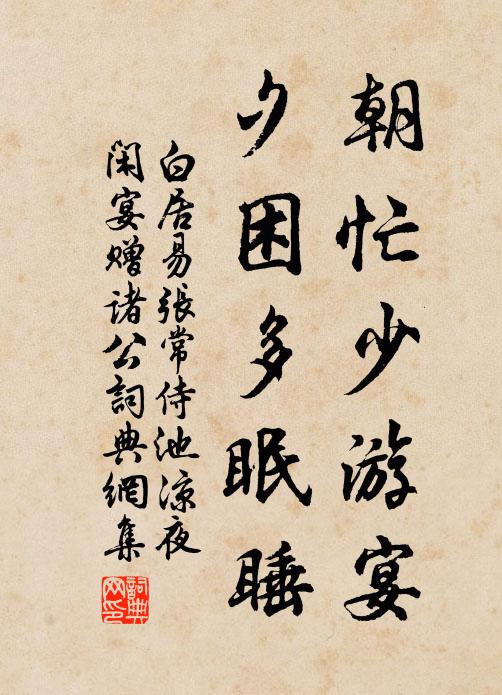 朝忙少游宴
夕困多眠睡
白居易張常侍池涼夜
閑宴贈諸公詞典網集
詞典网印